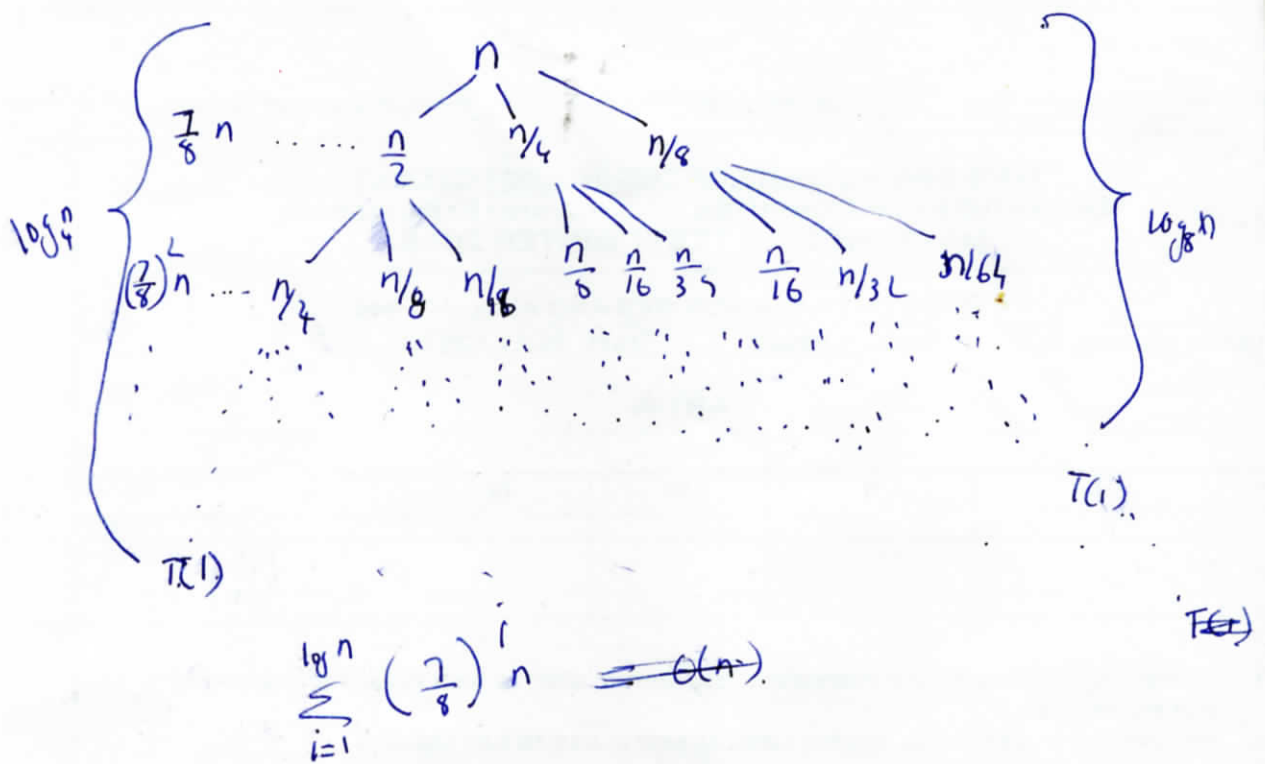 n
7/8 n ...... n/2 n/4 n/8
log₄ n log₈ n
(7/8)² n .... n/4 n/8 n/16 n/8 n/16 n/32 n/16 n/32 n/64
T(1)
T(1)
log n
Σ (7/8)^i n = O(n)
i=1